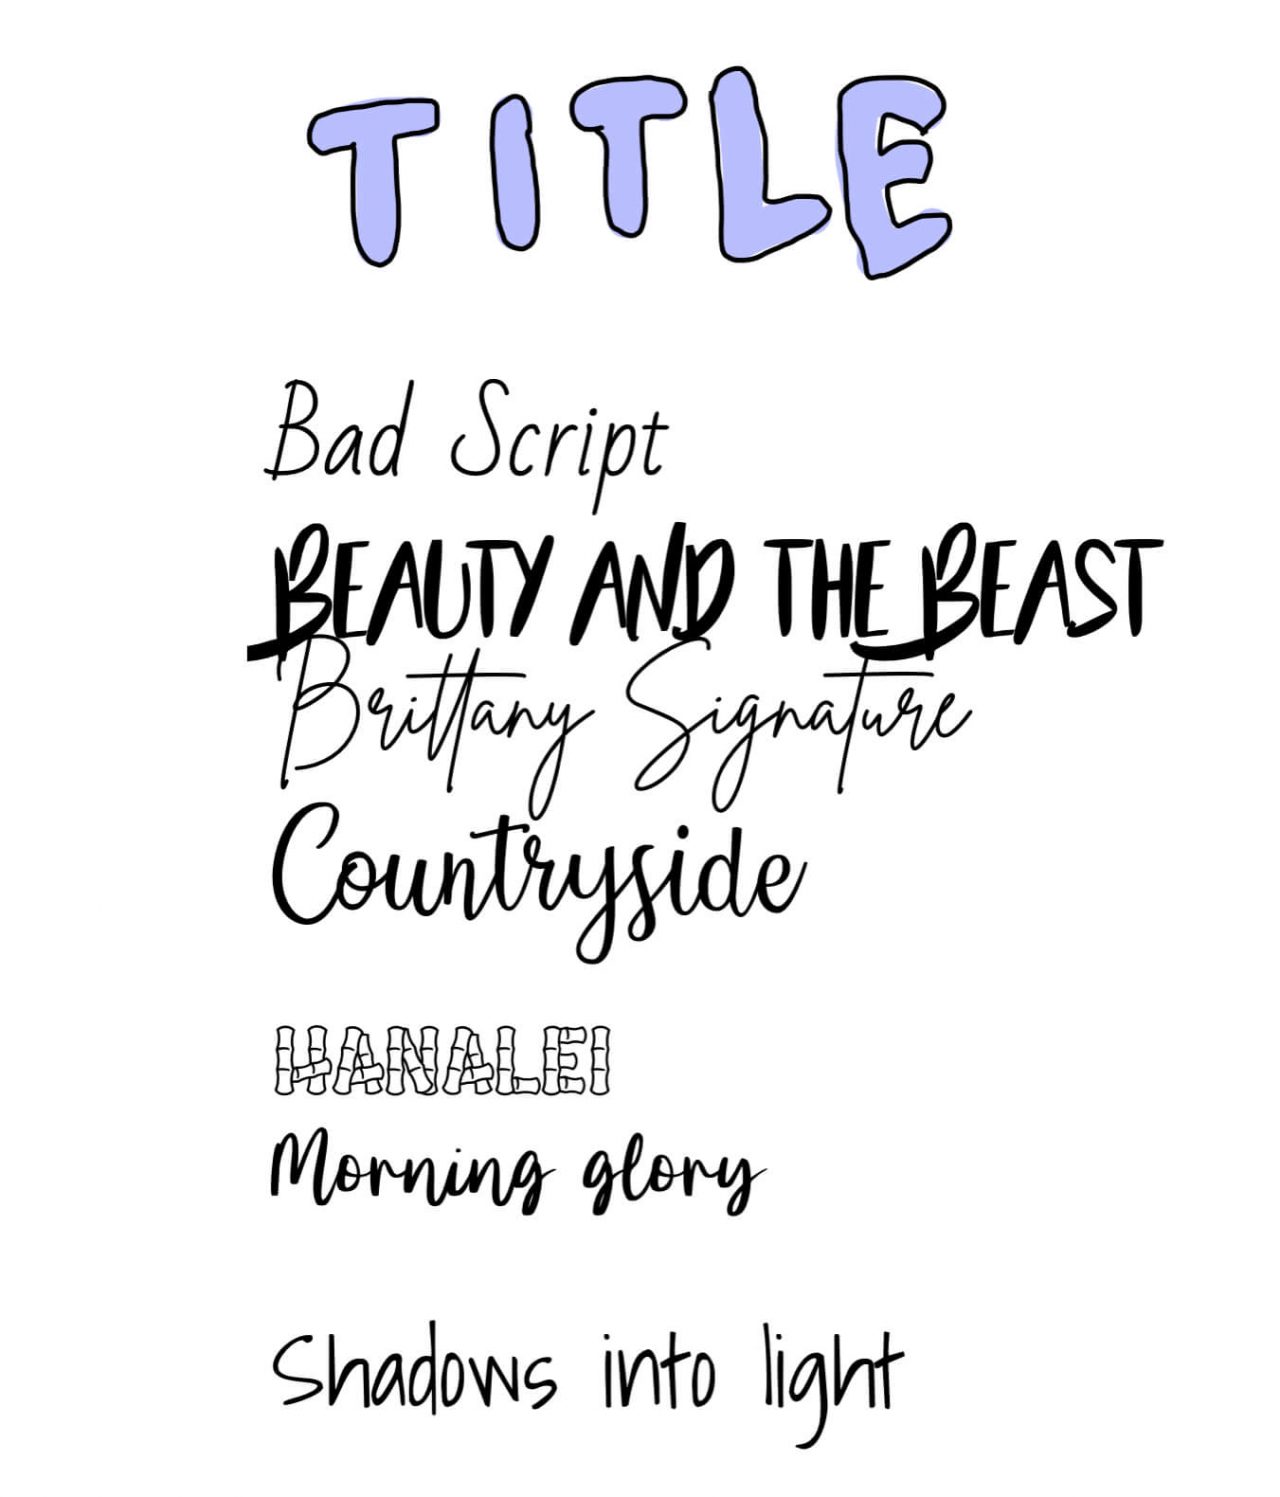 TITLE
Bad Script
BEAUTY AND THE BEAST
Brittany Signature
Countryside
HANALEI
Morning glory
Shadows into light